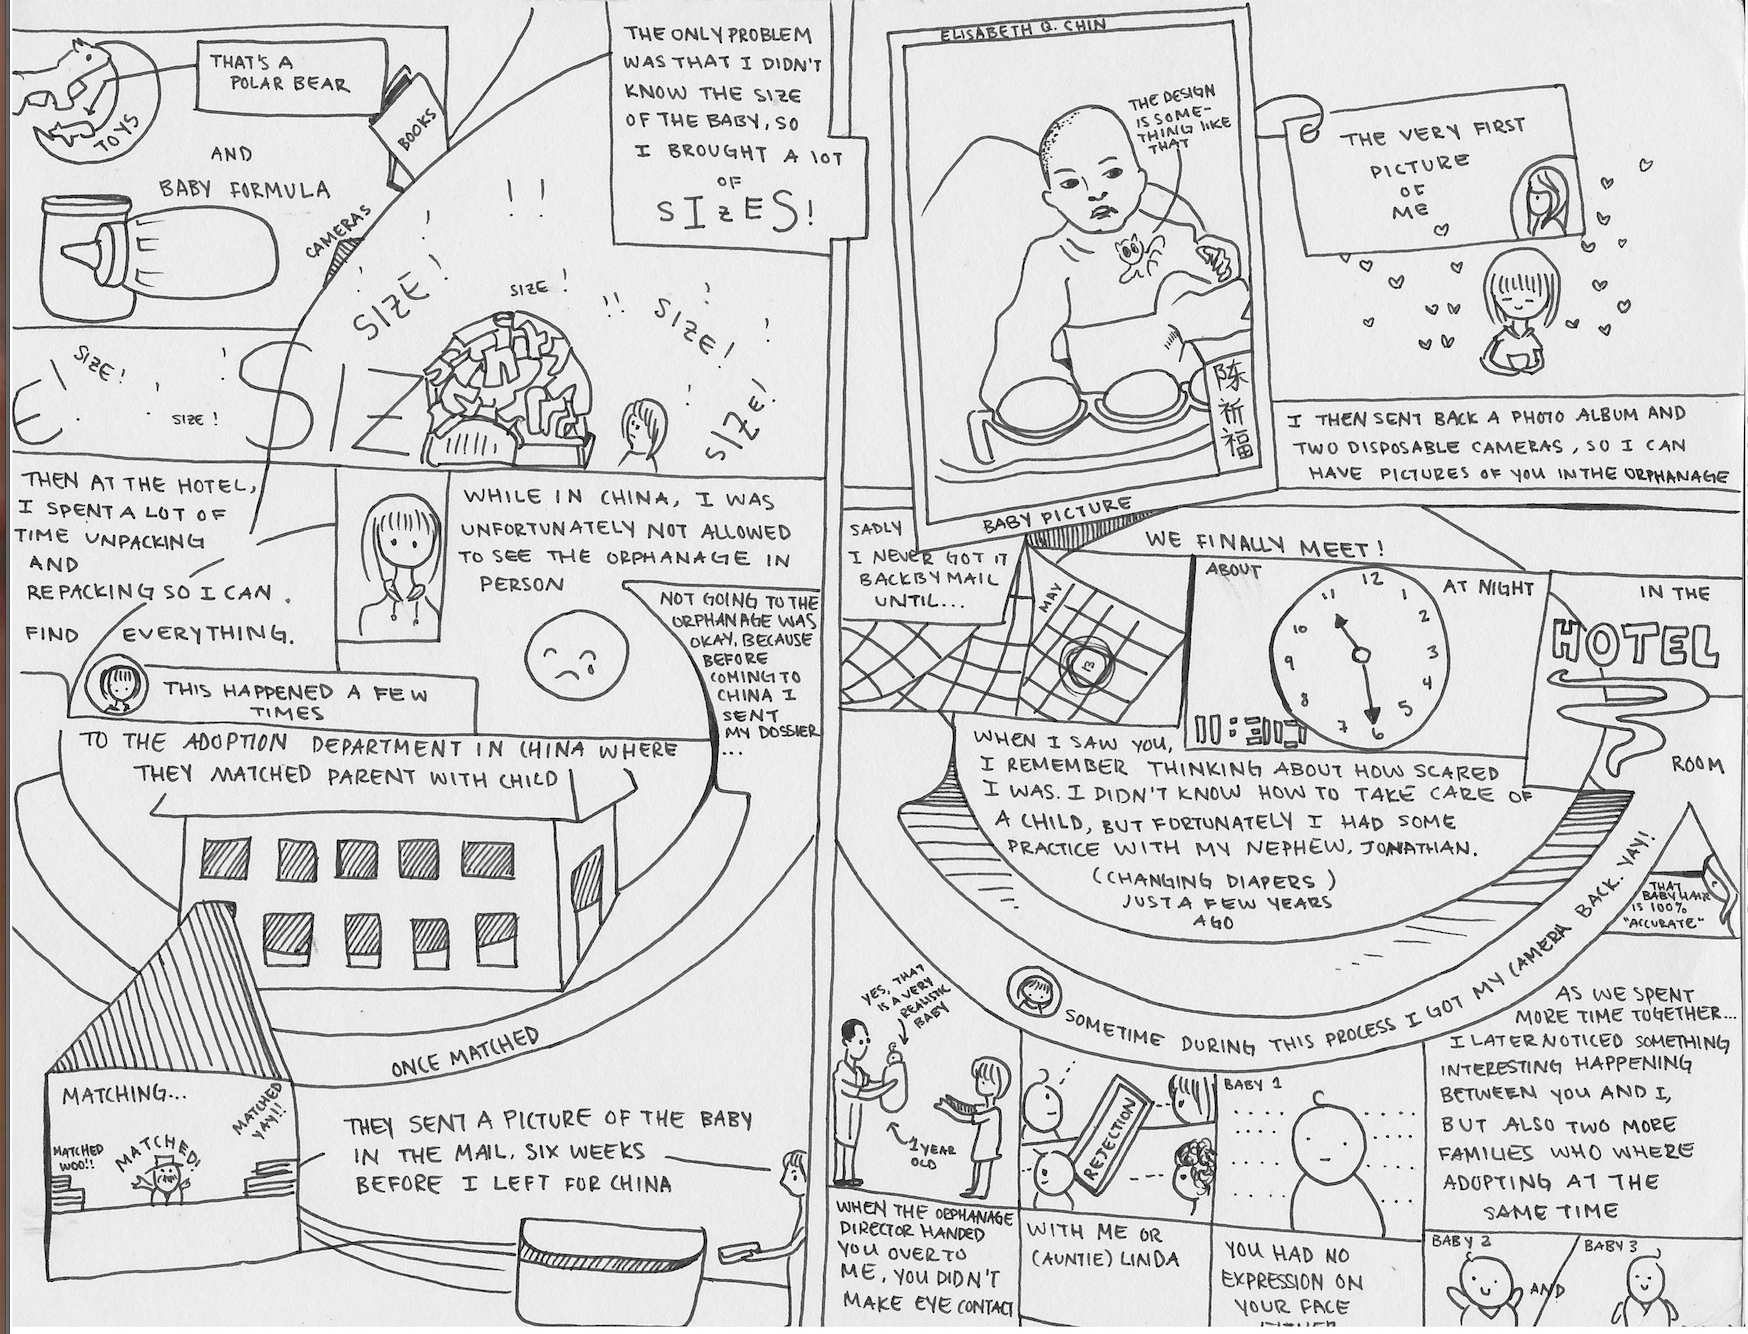 THAT'S A
POLAR BEAR
TOYS
BOOKS
AND
BABY FORMULA
CAMERAS
THE ONLY PROBLEM
WAS THAT I DIDN'T
KNOW THE SIZE
OF THE BABY, SO
I BROUGHT A LOT
OF
SIZES!
!!
SIZE!
SIZE!
!!
SIZE!
SIZE!
E!
SIZE!
SIZE!
SIZ
THEN AT THE HOTEL,
I SPENT A LOT OF
TIME UNPACKING
AND
REPACKING SO I CAN.
FIND EVERYTHING.
THIS HAPPENED A FEW
TIMES
WHILE IN CHINA, I WAS
UNFORTUNATELY NOT ALLOWED
TO SEE THE ORPHANAGE IN
PERSON
NOT GOING TO THE
ORPHANAGE WAS
OKAY, BECAUSE
BEFORE
COMING TO
CHINA I
SENT
MY DOSSIER
...
TO THE ADOPTION DEPARTMENT IN CHINA WHERE
THEY MATCHED PARENT WITH CHILD
ONCE MATCHED
MATCHING...
MATCHED
WOO!!
MATCHED!
MATCHED
YAY!!
THEY SENT A PICTURE OF THE BABY
IN THE MAIL, SIX WEEKS
BEFORE I LEFT FOR CHINA
ELISABETH Q. CHIN
THE DESIGN
IS SOME-
THING LIKE
THAT
陈
祈
福
BABY PICTURE
THE VERY FIRST
PICTURE
OF
ME
I THEN SENT BACK A PHOTO ALBUM AND
TWO DISPOSABLE CAMERAS, SO I CAN
HAVE PICTURES OF YOU IN THE ORPHANAGE
SADLY
I NEVER GOT IT
BACK BY MAIL
UNTIL...
MAY
13
WE FINALLY MEET!
ABOUT
12
1
2
3
4
5
6
7
8
9
10
11
11:30
AT NIGHT
IN THE
HOTEL
ROOM
WHEN I SAW YOU,
I REMEMBER THINKING ABOUT HOW SCARED
I WAS. I DIDN'T KNOW HOW TO TAKE CARE OF
A CHILD, BUT FORTUNATELY I HAD SOME
PRACTICE WITH MY NEPHEW, JONATHAN.
(CHANGING DIAPERS)
JUST A FEW YEARS
AGO
SOMETIME DURING THIS PROCESS I GOT MY CAMERA BACK. YAY!
THAT
BABY HAIR
IS 100%
"ACCURATE"
YES, THAT
IS A VERY
REALISTIC
BABY
1 YEAR
OLD
WHEN THE ORPHANAGE
DIRECTOR HANDED
YOU OVER TO
ME, YOU DIDN'T
MAKE EYE CONTACT
REJECTION
WITH ME OR
(AUNTIE) LINDA
BABY 1
YOU HAD NO
EXPRESSION ON
YOUR FACE
AS WE SPENT
MORE TIME TOGETHER...
I LATER NOTICED SOMETHING
INTERESTING HAPPENING
BETWEEN YOU AND I,
BUT ALSO TWO MORE
FAMILIES WHO WHERE
ADOPTING AT THE
SAME TIME
BABY 2
AND
BABY 3